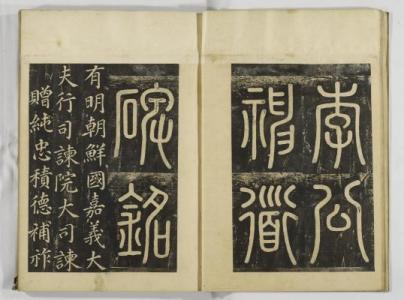 李公
神道
碑銘
有明朝鮮國嘉義大
夫行司諫院大司諫
贈純忠積德補祚